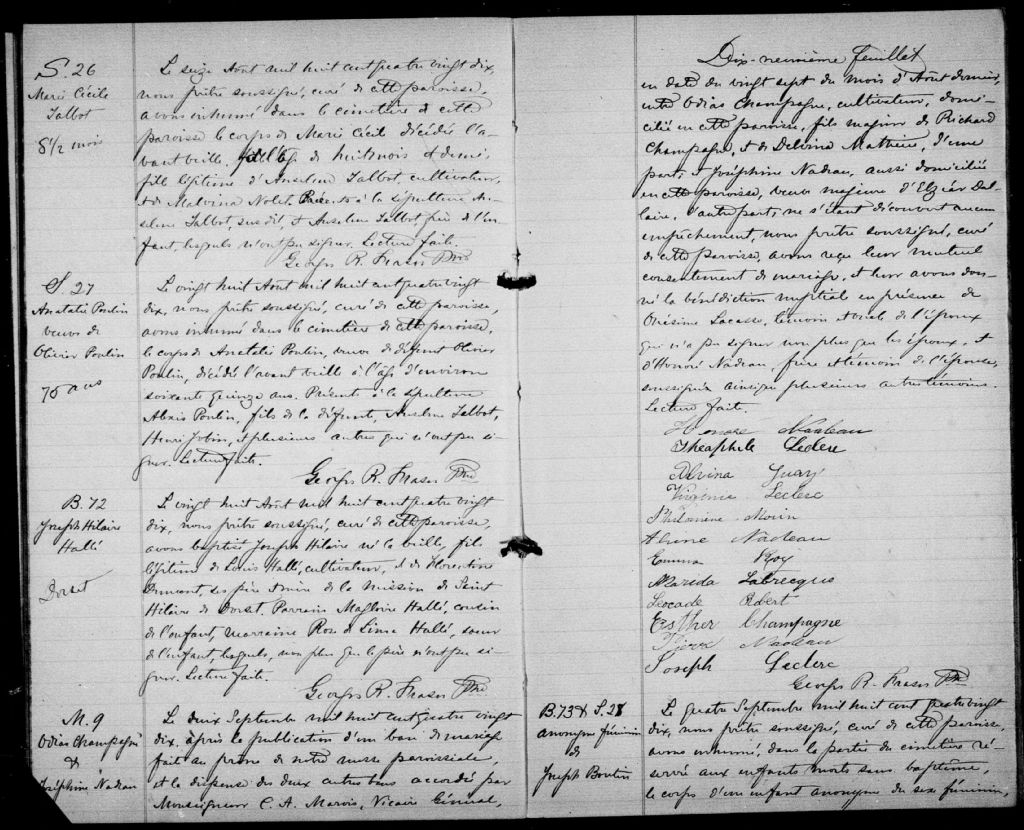 S. 26
Marie Cécile
Talbot
8 1/2 mois
Le seize Aout mil huit cent quatre vingt dix,
nous prêtre soussigné, curé de cette paroisse,
avons inhumé dans le cimetière de cette
paroisse le corps de Marie Cécil décédée l'a-
vant veille, agée de huit mois et demi,
fille légitime d'Anselme Talbot, cultivateur,
et de Malvina Nolet. Présents à la sépulture An-
selme Talbot, susdit, et Anselme Talbot père de l'en-
fant, lesquels n'ont pu signer. Lecture faite.
Georges R. Fraser Ptre
S. 27
Anatalie Poulin
veuve de
Olivier Poulin
75 ans
Le vingt huit Aout mil huit cent quatre vingt
dix, nous prêtre soussigné, curé de cette paroisse,
avons inhumé dans le cimetière de cette paroisse,
le corps de Anatalie Poulin, veuve de défunt Olivier
Poulin, décédée l'avant veille à l'âge d'environ
soixante quinze ans. Présents à la sépulture
Alexis Poulin, fils de la défunte, Anselme Talbot,
Henri Jobin, et plusieurs autres qui n'ont pu si-
gner. Lecture faite.
Georges R. Fraser Ptre
B. 72
Joseph Hilaire
Hallé
Dorset
Le vingt huit Aout mil huit cent quatre vingt
dix, nous prêtre soussigné, curé de cette paroisse,
avons baptisé Joseph Hilaire né la veille, fils
légitime de Louis Hallé, cultivateur, et de Florentine
Dumont, ses père et mère de la mission de Saint
Hilaire de Dorset. Parrain Magloire Hallé, cousin
de l'enfant, marraine Rose de Lima Hallé, soeur
de l'enfant, lesquels, non plus que le père n'ont pu si-
gner. Lecture faite.
Georges R. Fraser Ptre
M. 9
Odias Champagne
&
Joséphine Nadeau
Le deux Septembre mil huit cent quatre vingt
dix, après la publication d'un ban de mariage
fait au prone de notre messe paroissiale,
et la dispense des deux autres bans accordée par
Monseigneur C. A. Marois, Vicaire Général,
Dix-neuvième feuillet
en date du vingt sept du mois d'Aout dernier,
entre Odias Champagne, cultivateur, domi-
cilié en cette paroisse, fils majeur de Richard
Champagne, et de Delvina Mathieu, d'une
part, et Joséphine Nadeau, aussi domiciliée
en cette paroisse, veuve majeure d'Elzéar Dal-
laire, d'autre part, ne s'étant découvert aucun
empêchement, nous prêtre soussigné, curé
de cette paroisse, avons reçu leur mutuel
consentement de mariage, et leur avons don-
né la bénédiction nuptial en présence de
Onésime Lacasse, témoin de l'époux
qui n'a pu signer non plus que les époux, et
d'Honoré Nadeau, frère et témoin de l'épouse,
soussignés ainsi que plusieurs autres témoins.
Lecture faite.
Honoré Nadeau
Théophile Leclerc
Alvina Guay
Virginie Leclerc
Philomène Morin
Nadeau
Emma Roy
Labrecque
Leocade
Esther Champagne
Nadeau
Joseph Leclerc
Georges R. Fraser Ptre
B. 73 & S. 28
anonyme féminin
de
Joseph Boutin
Le quatre Septembre mil huit cent quatre vingt
dix, nous prêtre soussigné, curé de cette paroisse
avons inhumé, dans la partie du cimetière ré-
servée aux enfants morts sans baptême,
le corps d'un enfant anonyme du sexe féminin,